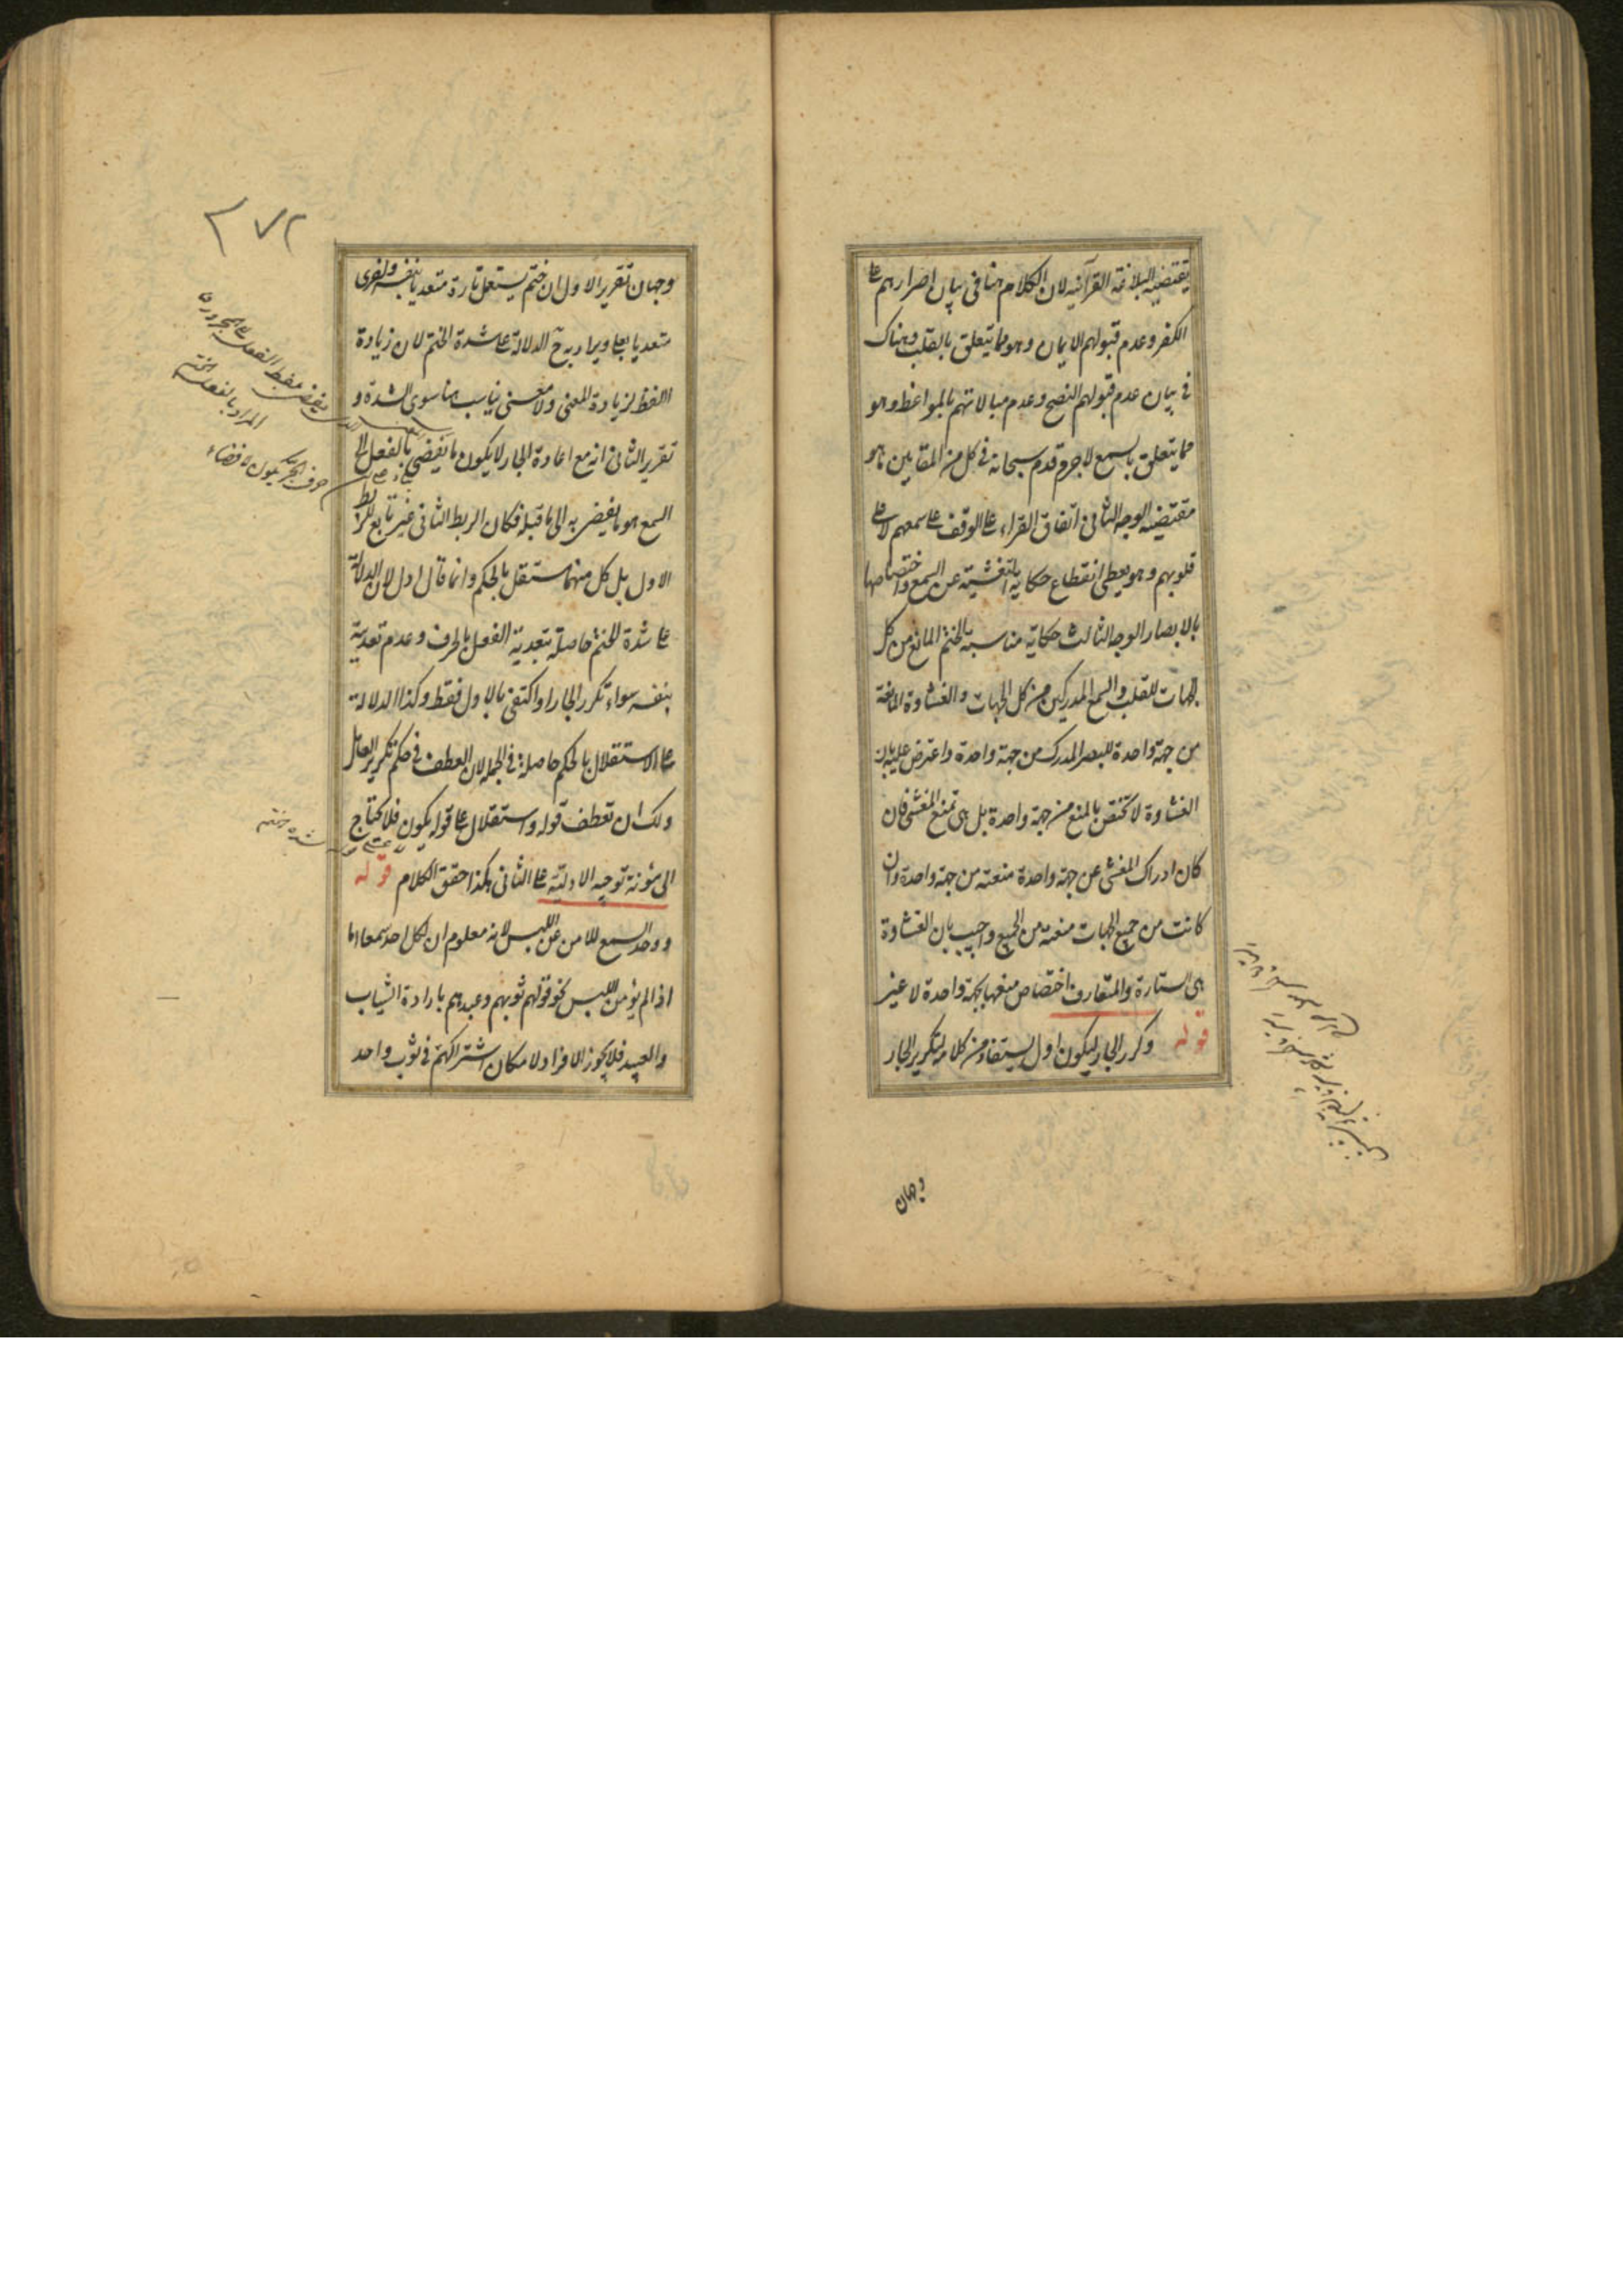 يقتضيه البلاغة القرآنيه لان الكلام هنا فى بيان اصرارهم على
الكفر وعدم قبولهم الايمان وهو مما يتعلق بالقلب وهناك
فى بيان عدم قبولهم النصح وعدم مبالاتهم بالمواعظ وهو
مما يتعلق بالسمع لا جرم قدم سبحانه فى كل من المقامين ما هو
مقتضيه الوجه الثانى اتفاق القراء على الوقف على سمعهم لا على
قلوبهم وهو يعطى انقطاع حكاية التغشية عن السمع واختصاصها
بالابصار الوجه الثالث حكاية مناسبة الختم المانع من كل
الجهات للقلب والسمع المدركين من كل الجهات والغشاوة المانعة
من جهة واحدة للبصر المدرك من جهة واحدة واعترض عليه بان
الغشاوة لا تختص بالمنع من جهة واحدة بل هى تمنع المغشى فان
كان ادراك المغشى عن جهة واحدة منعته من جهة واحدة وان
كانت من جميع الجهات منعته من الجميع واجيب بان الغشاوة
هى الستارة والمتعارف اختصاص منعها بجهة واحدة لا غير
قوله وكرر الجار ليكون ادل يستفاد من كلامه لتكرير الجار
وجهان
٢٧٢
وجهان تقرير الاول ان ختم يستعمل تارة متعديا بنفسه واخرى
متعديا بعلى ويراد به ح الدلالة على شدة الختم لان زيادة
اللفظ لزيادة المعنى ولا معنى يناسب هنا سوى الشدة و
تقرير الثانى انه مع اعادة الجار لا يكون ما يفضى بالفعل الى
السمع هو ما يفضى به الى ما قبله فكان الربط الثانى غير تابع للربط
الاول بل كل منهما مستقل بالحكم وانما قال ادل لان الدلالة
على شدة الختم حاصلة بتعدية الفعل بالحرف وعدم تعديته
بنفسه سواء تكرر الجار او اكتفى بالاول فقط وكذا الدلالة
على الاستقلال بالحكم حاصلة فى الجملة لان العطف فى حكم تكرير العامل
ولك ان تعطف قوله واستقلال على قوله يكون فلا تحتاج
الى مؤنة توجيه الادلية على الثانى هكذا حقق الكلام قوله
ووحد السمع للامن عن اللبس لانه معلوم ان لكل احد سمعا اما
اذا لم يؤمن اللبس نحو قولهم ثوبهم وعبدهم بارادة الثياب
والعبيد فلا يجوز الافراد لامكان اشتراكهم فى ثوب واحد
المراد بالفعل الختم